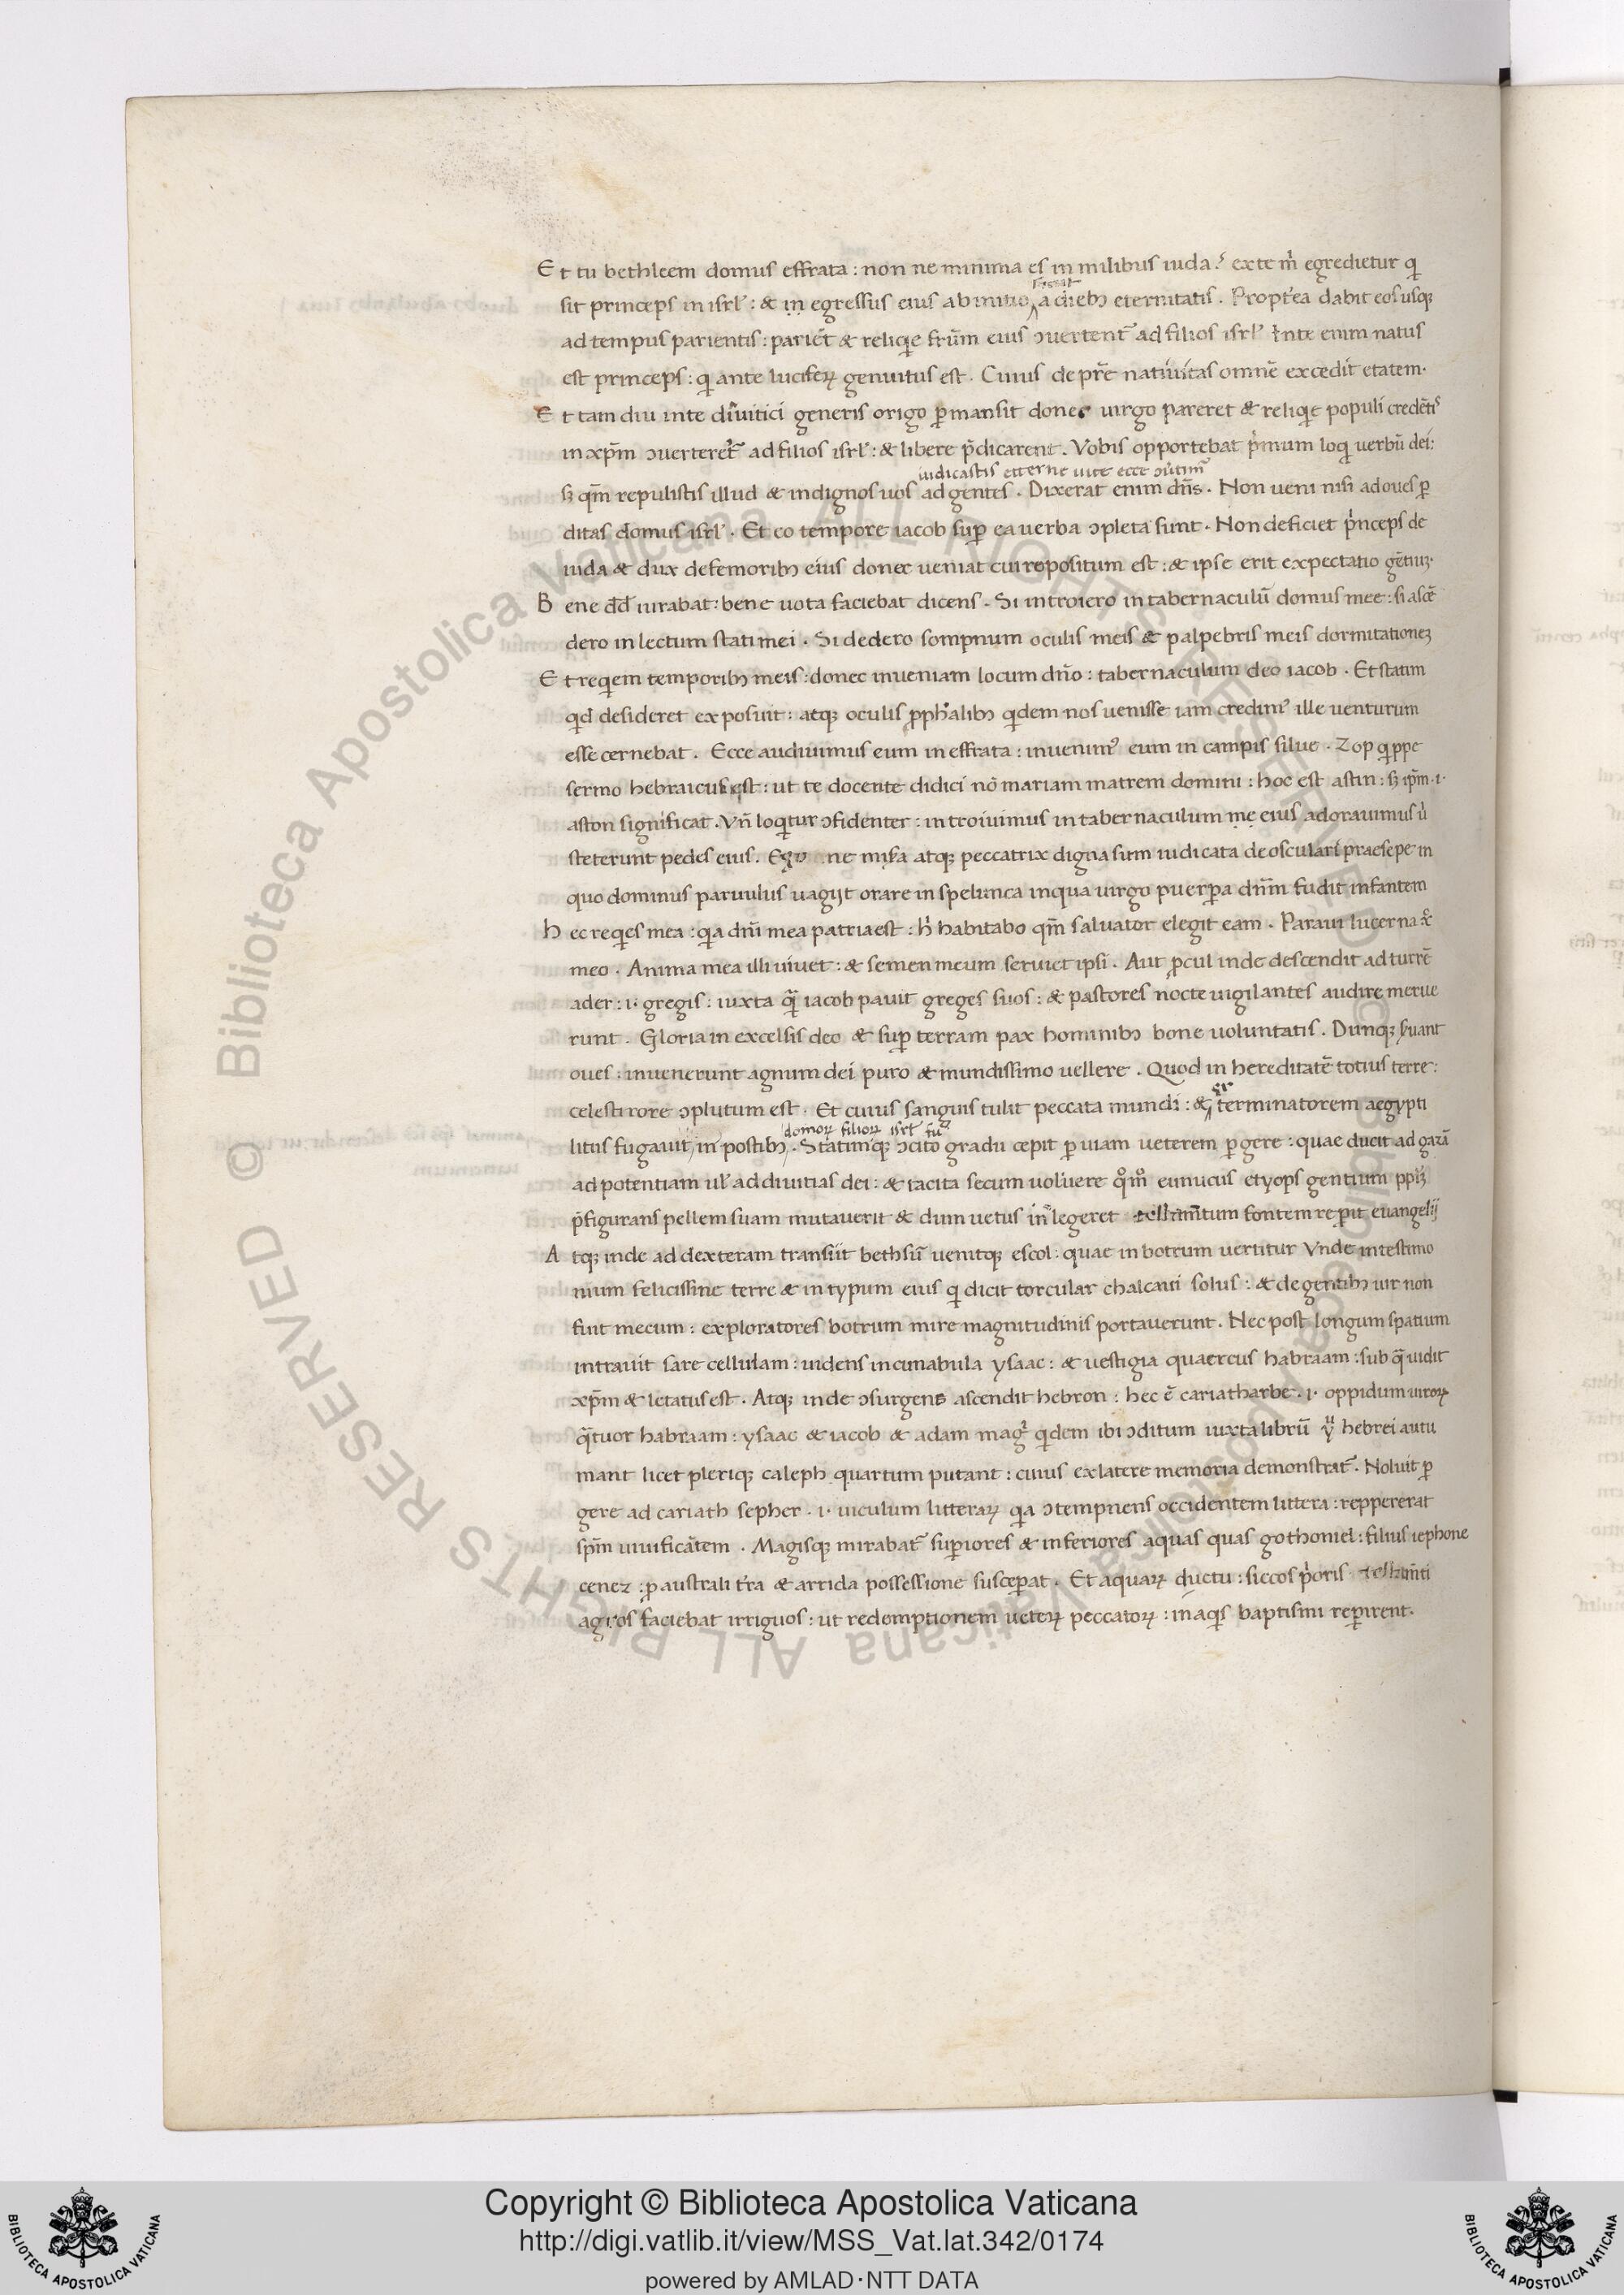 Et tu bethleem domus effrata : non ne minima es in milibus iuda ? ex te m̄ egredietur q̄
sit princeps in isrl̄ : & in egressus eius ab initio a dieb; eternitatis . Propt̄ea dabit eos usq;
ad tempus parientis : pariet & reliqie fr̄um eius ɔuertent᷑ ad filios isrl̄ Inte enim natus
est princeps : qi ante luciferꝝ genuitus est . Cuius de pr̄e natiuitas omnē excedit etatem .
Et tam diu inte diuitici generis origo ꝑmansit donec uirgo pareret & reliqie populi credēt᷒
in xp̄m ɔuerteret᷑ ad filios isrl̄ : & libere p̄dicarent . Vobis opportebat p̄mum loqi verbū dei :
iudicastis etterne uite ecce ɔu̇timr᷑
sꝫ qm̄ repulistis illud & indignos uos ad gentes . Dixerat enim dn̄s . Non ueni nisi ad oues ꝑ
ditas domus isrl̄ . Et eo tempore iacob suꝑ ea verba ɔpleta sunt . Non deficiet p̄nceps de
iuda & dux de femorib; eius donec ueniat cui repositum est : & ipse erit expectatio gētiuꝫ .
Bene dd̄ iurabat : bene uota faciebat dicens . Si introiero in tabernaculū domus mee : si ascē
dero in lectum stati mei . Si dedero sompnum oculis meis & palpebris meis dormitationeꝫ
Et reqiem temporib; meis : donec inueniam locum dn̄o : tabernaculum deo iacob . Et statim
qid desideret exposuit : atq; oculis ꝓph̄alib; qidem nos uenisse iam credim᷒ ille venturum
esse cernebat . Ecce audiuimus eum in effrata : inuenim᷒ eum in campis silue . Zop qippe
sermo hebraicus est : ut te docente didici nō mariam matrem domini : hoc est astin : sꝫ ip̄m .i.
aston significat . Vn̄ loqitur ɔfidenter : introiuimus in tabernaculum me eius adorauimus u̇
steterunt pedes eius . Ego ne misa atq; peccatrix digna sum iudicata deosculari praesepe in
quo dominus paruulus uagijt orare in spelunca in qua uirgo puerꝑa dn̄m fudit infantem
hec reqies mea : qia dn̄i mea patria est : h̄ habitabo qm̄ saluator elegit eam . Paraui lucerna x̄
meo . Anima mea illi uiuet : & semen meum seruiet ipsi . Aut ꝓcul inde descendit ad turrē
ader : .i. gregis : iuxta q̄ iacob pauit greges suos : & pastores nocte uigilantes audire merue
runt . Gloria in excelsis deo & suꝑ terram pax hominib; bone uoluntatis . Dunq; s̄uant
oues : inuenerunt agnum dei puro & mundissimo uellere . Quod in hereditatē totius terre :
celesti rore ɔplutum est . Et cuius sanguis tulit peccata mundi : & terminatorem aegypti
domoꝝ filioꝝ isrl̄
litus fugauit in postib; . Statimq; ɔcito gradu cepit ꝑ uiam ueterem ꝑgere : quae ducit ad gazā
ad potentiam ul̄ ad diuitias dei : & tacita secum uoluere qomo eunucus etyops gentium
p̄figurans pellem suam mutauerit & dum uetus legeret testam̄tum fontem reꝑit euangelij
Atq; inde ad dexteram transiit bethsur̄ uenitq; escol : quae in botrum uertitur Vnde in testimo
nium felicissine terre & in typum eius qi dicit torcular chalcaui solus : & de gentib; uir non
fuit mecum : exploratores botrum mire magnitudinis portauerunt . Nec post longum spatium
intrauit sare cellulam : uidens incunabula ysaac : & uestigia quaercus habraam : sub q̄ uidit
xp̄m & letatus est . Atq; inde ɔsurgens ascendit hebron : hec ē cariatharbe . i . oppidum uiroꝝ
qatuor habraam : ysaac & iacob & adam mag̅ qidem ibi ɔditum iuxta librū hebrei autu
mant licet pleriq; caleph quartum putant : cuius ex latere memoria demonstrat᷑ . Noluit ꝑ
gere ad cariath sepher . i . uiculum litteraꝝ qia ɔtempnens occidentem littera : reppererat
sp̄m uiuificātem . Magisq; mirabat᷑ suꝑiores & inferiores aquas quas gothoniel : filius iephone
cenez : ꝓ australi t̄ra & arrida possessione susceꝑat . Et aquaꝝ ductu : siccos p̄oris testam̄ti
agros faciebat irriguos : ut redemptionem ueteꝝ peccatoꝝ : in aqis baptismi reꝑirent .
Copyright © Biblioteca Apostolica Vaticana
http://digi.vatlib.it/view/MSS_Vat.lat.342/0174
powered by AMLAD·NTT DATA
BIBLIOTECA APOSTOLICA VATICANA
BIBLIOTECA APOSTOLICA VATICANA
© Biblioteca Apostolica Vaticana ALL RIGHTS RESERVED © Biblioteca Apostolica Vaticana ALL RIGHTS RESERVED